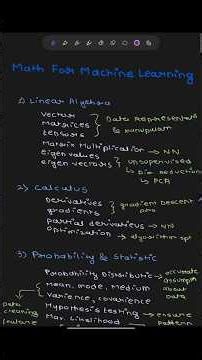 Math For Machine Learning
1) Linear Algebra
Vector
Matrices
tensors
Data Represent
&
Matrix Multiplication → NN
eigen values
eigen vectors
Unsupervised
→ Dim reduction
→ PCA
2) Calculus
Derivatives
gradients
gradient Descent
partial derivatives → NN
Optimization → algorithm opt
3) Probability & Statistic
Probability Distributic
Mean, mode, Medium
Variance, covarience
accurate
assumption
about
Data
Data
cleaning
Hypothesis testing
Max. Likelihood
ensure
pattern